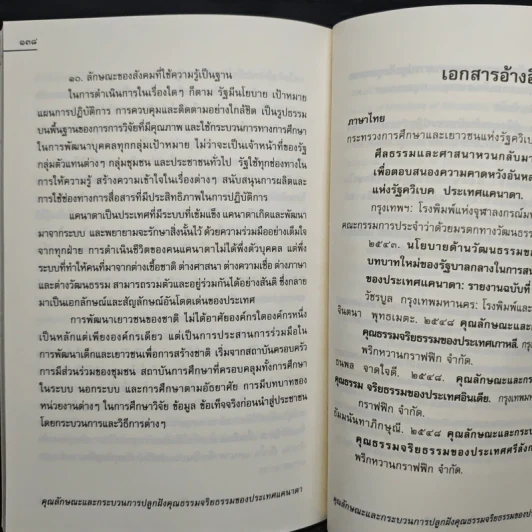 ๑๓๘
๑๐. ลักษณะของสังคมที่ใช้ความรู้เป็นฐาน
ในการดำเนินการในเรื่องใดๆ ก็ตาม รัฐมีนโยบาย เป้าหมาย
แผนการปฏิบัติการ การควบคุมและติดตามอย่างใกล้ชิด เป็นรูปธรรม
บนพื้นฐานของการการวิจัยที่มีคุณภาพ และใช้กระบวนการทางการศึกษา
ในการพัฒนาบุคคลทุกกลุ่มเป้าหมาย ไม่ว่าจะเป็นเจ้าหน้าที่ของรัฐ
กลุ่มตัวแทนต่างๆ กลุ่มชุมชน และประชาชนทั่วไป รัฐใช้ทุกช่องทางใน
การให้ความรู้ สร้างความเข้าใจในเรื่องต่างๆ สนับสนุนการผลิตและ
การใช้ช่องทางการสื่อสารที่มีประสิทธิภาพในการปฏิบัติการ
แคนาดาเป็นประเทศที่มีระบบที่เข้มแข็ง แคนาดาเกิดและพัฒนา
มาจากระบบ และพยายามจะรักษาสิ่งนั้นไว้ ด้วยความร่วมมืออย่างเต็มใจ
จากทุกฝ่าย การดำเนินชีวิตของคนแคนาดาไม่ได้พึ่งตัวบุคคล แต่พึ่ง
ระบบที่ทำให้คนที่มาจากต่างเชื้อชาติ ต่างศาสนา ต่างความเชื่อ ต่างภาษา
และต่างวัฒนธรรม สามารถรวมตัวและอยู่ร่วมกันได้อย่างสันติ ซึ่งกลาย
มาเป็นเอกลักษณ์และสัญลักษณ์อันโดดเด่นของประเทศ
การพัฒนาเยาวชนของชาติ ไม่ได้อาศัยองค์กรใดองค์กรหนึ่ง
เป็นหลักแต่เพียงองค์กรเดียว แต่เป็นการประสานการร่วมมือใน
การพัฒนาเด็กและเยาวชนเพื่อการสร้างชาติ เริ่มจากสถาบันครอบครัว
การมีส่วนร่วมของชุมชน สถาบันการศึกษาที่ครอบคลุมทั้งการศึกษา
ในระบบ นอกระบบ และการศึกษาตามอัธยาศัย การมีบทบาทของ
หน่วยงานต่างๆ ในการศึกษาวิจัย ข้อมูล ข้อเท็จจริงก่อนนำสู่ประชาชน
โดยกระบวนการและวิธีการต่างๆ
คุณลักษณะและกระบวนการปลูกฝังคุณธรรมจริยธรรมของประเทศแคนาดา
เอกสารอ้างอิ
ภาษาไทย
กระทรวงการศึกษาและเยาวชนแห่งรัฐควิเบ
ศีลธรรมและศาสนาหวนกลับมา
เพื่อตอบสนองความคาดหวังอันหล
แห่งรัฐควิเบค ประเทศแคนาดา.
กรุงเทพฯ: โรงพิมพ์แห่งจุฬาลงกรณ์มห
คณะกรรมการประจำว่าด้วยมรดกทางวัฒนธรร
๒๕๔๓. นโยบายด้านวัฒนธรรมขอ
บทบาทใหม่ของรัฐบาลกลางในการสน
ของประเทศแคนาดา: รายงานฉบับที่
วัชรบูล กรุงเทพมหานคร: โรงพิมพ์และ
จินตนา พุทธเมตะ. ๒๕๔๘ คุณลักษณะและกระ
คุณธรรมจริยธรรมของประเทศเกาหลี. กรุง
พริกหวานกราฟฟิก จำกัด.
ธนพล จาดใจดี. ๒๕๔๘. คุณลักษณะและก
คุณธรรม จริยธรรมของประเทศอินเดีย. กรุงเทพมห
กราฟฟิก จำกัด.
ธัมมนันทาภิกษุณี. ๒๕๔๘ คุณลักษณะและกระบ
คุณธรรมจริยธรรมของประเทศศรีลังก
พริกหวานกราฟฟิก จำกัด.
คุณลักษณะและกระบวนการปลูกฝังคุณธรรมจริยธรรมของประ